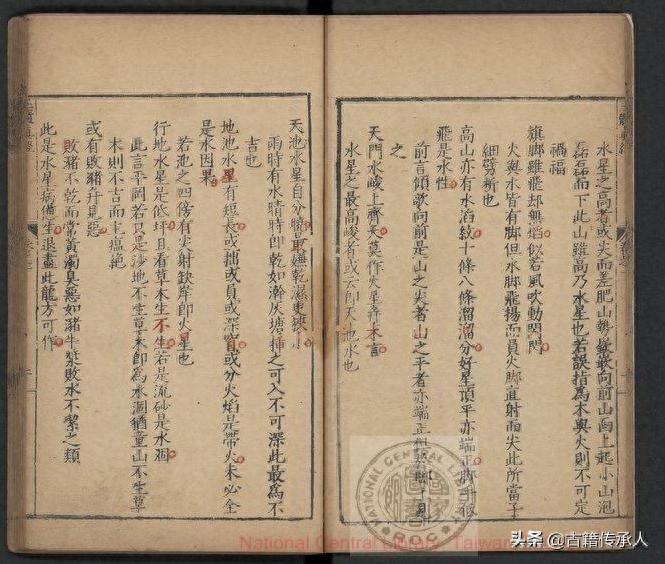 水星之高者或尖而差肥山勢敧向前山面上起小山泡
磊磊而下此山雖高乃水星也若誤指為木與火則不可定
禍福
旗脚雖飛却無焰似若風吹動閃閃
火與水皆有脚但水脚飛揚而員火脚直射而尖此所當子
細劈斬也
高山亦有水滔紋十條八條溜溜分好星頂平亦端正脚手
飛是水性
前言傾欹向前是山之尖者山之平者亦端正但
之
天門水峻上齊天莫作火星弃不言
水星之最高峻者或云即天池水也
天池水星自分曉最嫌乾濕更狹小
雨時有水晴時即乾如瀚灰塘挿之可入不可深此最為不
吉也
地池水星有短長或拙或員或深窟或分火焰是帶火未必全
是水因果
若池之四傍有尖射缺岸即火星也
行地水星是低坪且看草木生不生若是流砂是水涸
此言平岡若只是沙地不生草木即為水涸猶童山不生草
木則不吉而主瘟絶
或有敗豬弁見惡
敗豬不乾而常黃濁臭惡如潴牛漿敗水不潔之類
此是水星病德生退盡此龍方可作
NATIONAL CENTRAL LIBRARY
National Central Library, Taiwan
头条 @古籍传承人